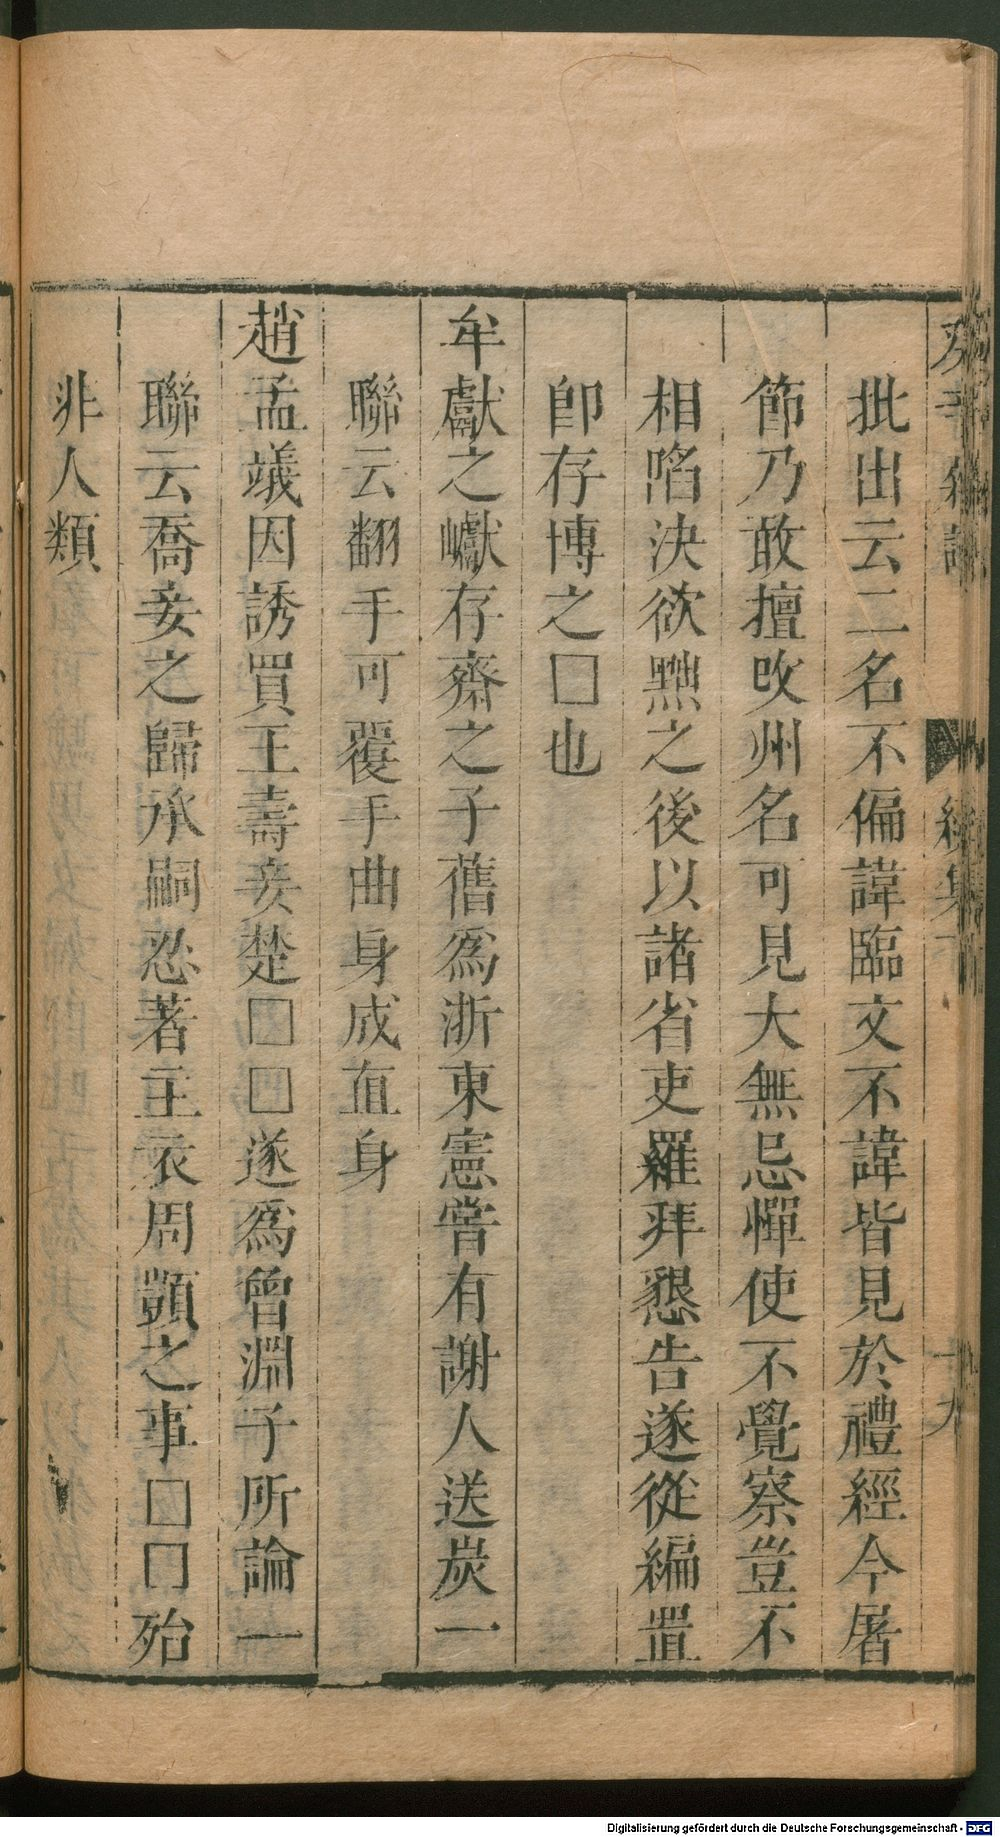 癸辛雜識 續集下 十九
批出云二名不偏諱臨文不諱皆見於禮經今屠
節乃敢擅改州名可見大無忌憚使不覺察豈不
相陷決欲黥之後以諸省吏羅拜懇告遂從編置
卽存博之□也
牟獻之巘存齋之子舊爲浙東憲嘗有謝人送炭一
聯云翻手可覆手曲身成直身
趙孟䕏因誘買王壽妾楚□□遂爲曾淵子所論一
聯云喬妾之歸承嗣忍著主衣周顗之事□□殆
非人類
Digitalisierung gefördert durch die Deutsche Forschungsgemeinschaft - DFG